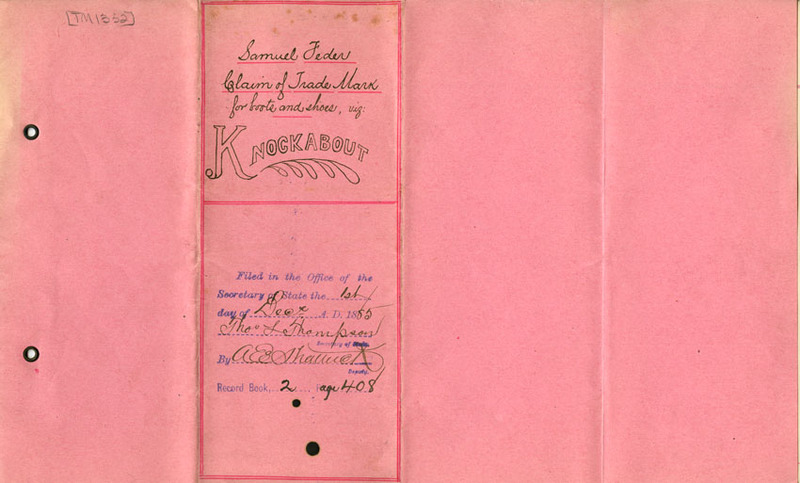 [TM1352]
Samuel Feder
Claim of Trade Mark
for boots and shoes, viz:
KNOCKABOUT
Filed in the Office of the
Secretary of State the 1st
day of Decr A. D. 1885
Thos L Thompson
Secretary of State.
By A E Shattuck
Deputy.
Record Book, 2 Page 408